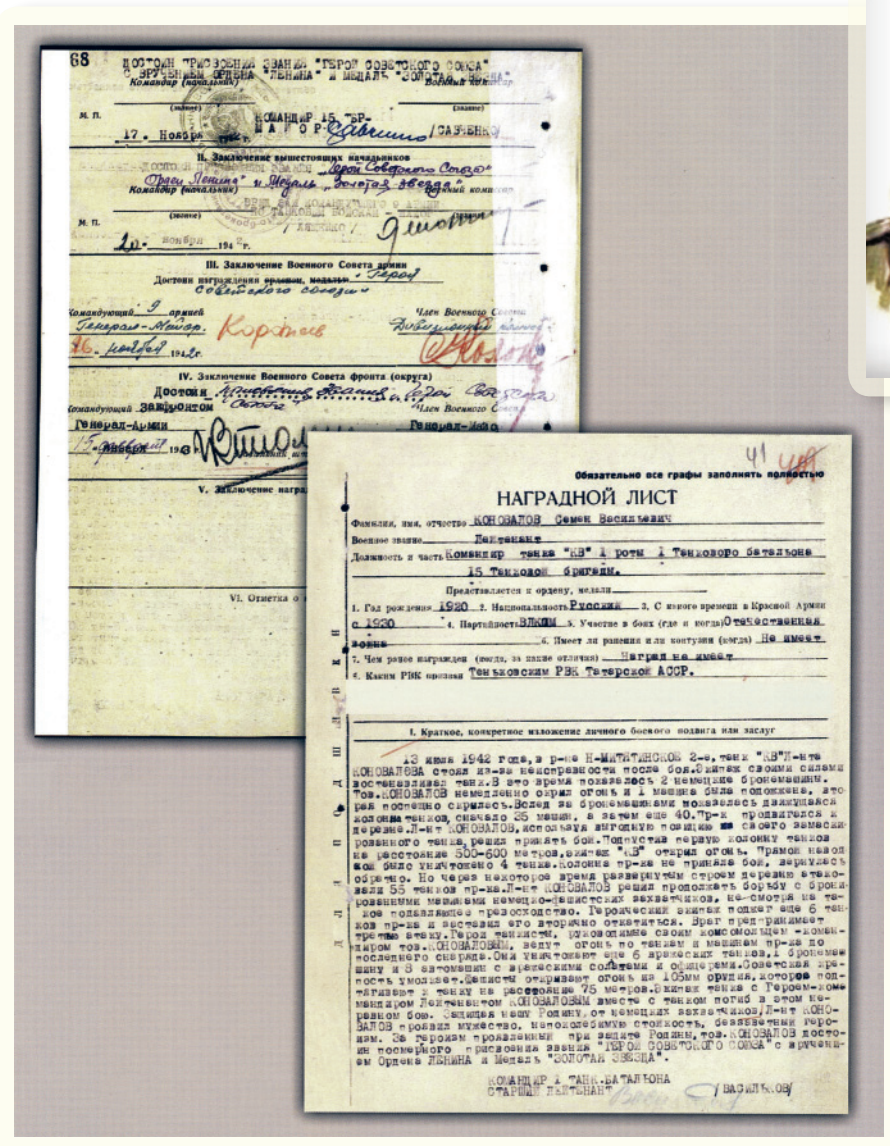 68
ДОСТОИН ПРИСВОЕНИЯ ЗВАНИЯ "ГЕРОЙ СОВЕТСКОГО СОЮЗА"
С ВРУЧЕНИЕМ ОРДЕНА "ЛЕНИНА" И МЕДАЛЬ "ЗОЛОТАЯ ЗВЕЗДА"
Командир (начальник) Военный комиссар
(звание) (звание)
М. П.
КОМАНДИР 15 ТБР-
МАЙОР- /САВЧЕНКО/
17. Ноября
II. Заключение вышестоящих начальников
"Герой Советского Союза"
Орден Ленина" и Медаль "Золотая звезда"
Командир (начальник) Военный
(звание)
М. П.
20- ноября 1942 г.
III. Заключение Военного Совета армии
Достоин награждения орденом, медалью "Герой
советского союза"
Командующий 9 армией Член Военного Совета
Генерал-Майор.
26. ноября 1942г.
IV. Заключение Военного Совета фронта (округа)
Достоин присвоения звания "Герой Советского
Союза"
Командующий Закфронтом Член Военного Совета
Генерал-Армии
15 февраля 1943
V. Заключение
VI. Отметка о
41
Обязательно все графы заполнять полностью
НАГРАДНОЙ ЛИСТ
Фамилия, имя, отчество КОНОВАЛОВ Семен Васильевич
Военное звание Лейтенант
Должность и часть Командир танка "КВ" I роты I Танкового батальона
15 Танковой бригады.
Представляется к ордену, медали
1. Год рождения 1920 2. Национальность Русский 3. С какого времени в Красной Армии
с 1930 4. Партийность ВЛКСМ 5. Участие в боях (где и когда) Отечественная
война 6. Имеет ли ранения или контузии (когда) Не имеет
7. Чем ранее награжден (когда, за какие отличия) Наград не имеет
8. Каким РВК призван Теньковским РВК Татарской АССР.
I. Краткое, конкретное изложение личного боевого подвига или заслуг
13 июля 1942 года, в р-не Н-МИТЯТИНСКОЕ 2-е, танк "КВ" Л-нта
КОНОВАЛОВА стоял из-за неисправности после боя. Экипаж своими силами
востанавливал танк. В это время показалось 2 немецкие бронемашины.
Тов. КОНОВАЛОВ немедленно окрил огонь и I машина была подожжена, вто-
рая поспешно скрылась. Вслед за бронемашинами показалась движущаяся
колонна танков, сначало 35 машин, а затем еще 40. Пр-к продвигался к
деревне. Л-нт КОНОВАЛОВ, используя выгодную позицию своего замаски-
рованного танка, решил принять бой. Подпустив первую колонну танков
на расстояние 500-600 метров, экипаж "КВ" открил огонь. Прямой навод
кой было уничтожено 4 танка. Колонна пр-ка не приняла бой, вернулась
обратно. Но через некоторое время развернутым строем деревню атако-
вали 55 танков пр-ка. Л-нт КОНОВАЛОВ решил продолжать борьбу с брони-
рованными машинами немецко-фашистских захватчиков, не-смотря на та-
кое подавляющее превосходство. Героический экипаж поджег еще 6 тан-
ков пр-ка и заставил его вторично откатиться. Враг предпринимает
третью атаку. Герои танкисты, руководимые своим комсомольцем -коман-
диром тов. КОНОВАЛОВЫМ, ведут огонь по танкам и машинам пр-ка до
последнего снаряда. Они уничтожают еще 6 вражеских танков, I бронема
шину и 8 автомашин с вражескими солдатами и офицерами. Советская кре-
пость умолкает. Фашисты открывают огонь из 105мм орудия, которое под-
тягивают к танку на расстояние 75 метров. Экипаж танка с Героем-кома
мандиром Лейтенантом КОНОВАЛОВЫМ вместе с танком погиб в этом не-
равном бою. Защищая нашу Родину, от немецких захватчиков, Л-нт КОНО-
ВАЛОВ проявил мужество, непоколебимую стойкость, беззаветный геро-
изм. За героизм проявленный при защите Родины, тов. КОНОВАЛОВ досто-
ин посмертно присвоения звания "ГЕРОЙ СОВЕТСКОГО СОЮЗА" с вручени-
ем Ордена ЛЕНИНА и Медаль "ЗОЛОТАЯ ЗВЕЗДА".
КОМАНДИР I ТАНК. БАТАЛЬОНА
СТАРШИЙ ЛЕЙТЕНАНТ /ВАСИЛЬКОВ/